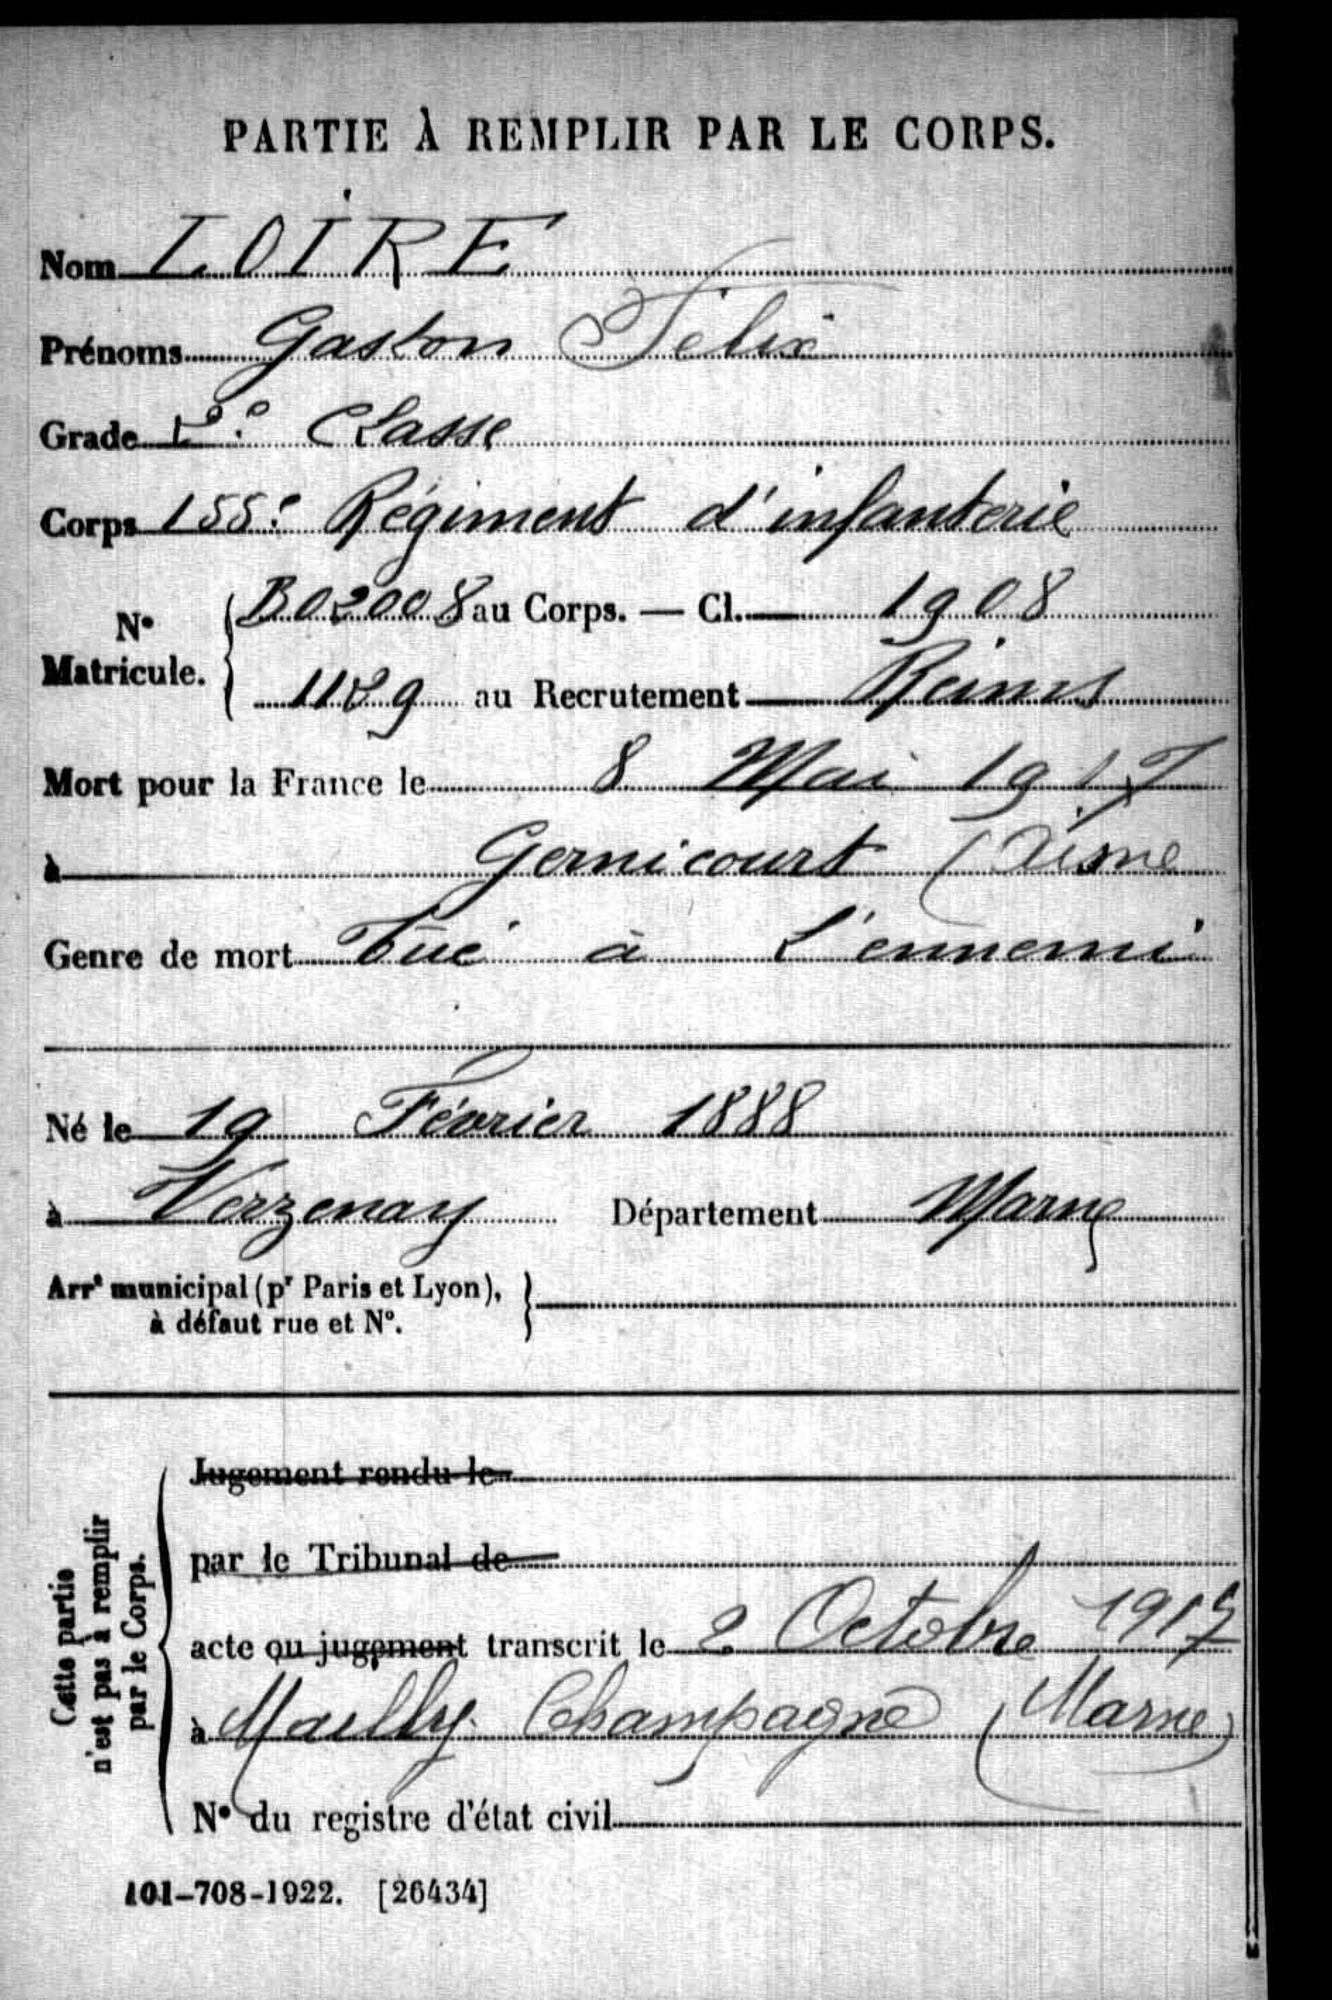 PARTIE À REMPLIR PAR LE CORPS.
Nom LOIRE
Prénoms Gaston Félix
Grade 2e Classe
Corps 155e Régiment d'infanterie
N° Matricule. B02008 au Corps. — Cl. 1908
1129 au Recrutement Reims
Mort pour la France le 8 Mai 1917
à Gernicourt (Aisne
Genre de mort Tué à l'ennemi
Né le 19 Février 1888
à Verzenay Département Marne
Arrt municipal (pr Paris et Lyon), à défaut rue et N°.
Cette partie n'est pas à remplir par le Corps.
Jugement rendu le
par le Tribunal de
acte ou jugement transcrit le 2 Octobre 1917
à Mailly Champagne (Marne)
N° du registre d'état civil
101-708-1922. [26434]